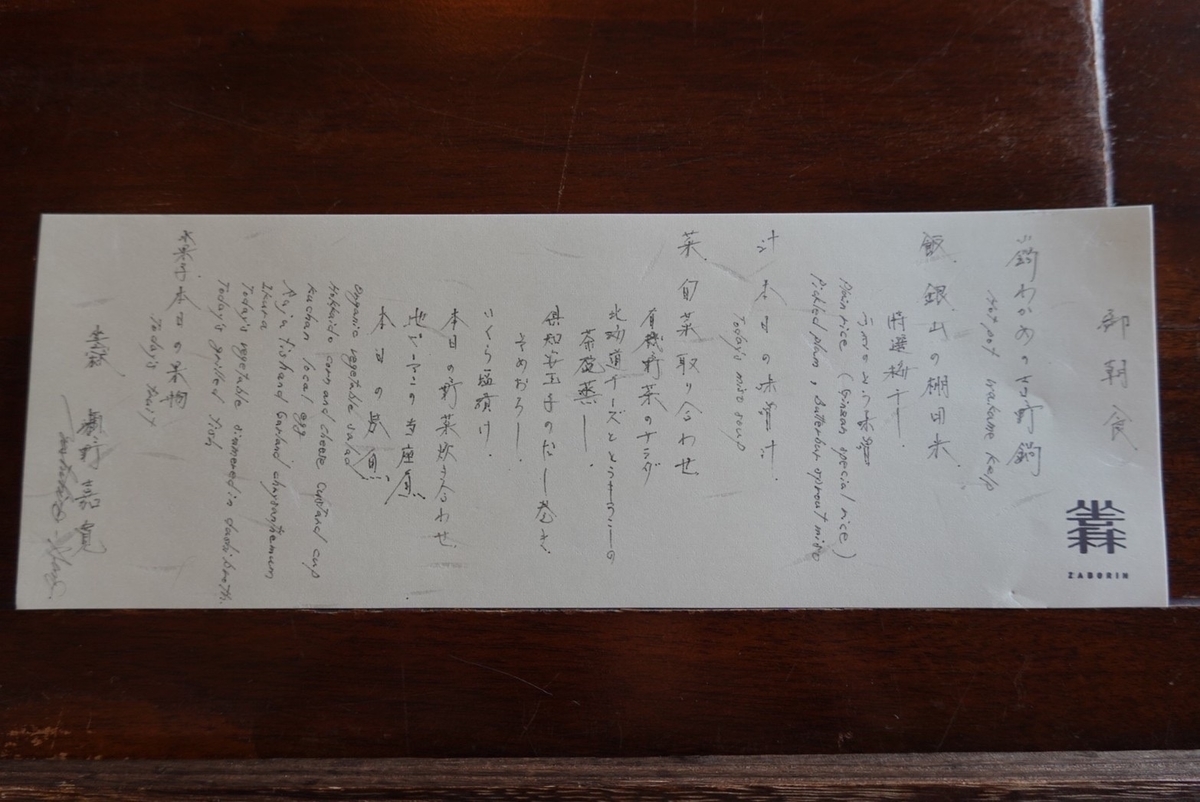 坐忘林
ZABORIN
朝食
鍋 わかめの 鍋
Hot pot wakame kelp
飯 銀山の棚田米
特選梅干し
ふきのとう味噌
Plain rice (Ginzan special rice)
Pickled plum, Butterbur sprout miso
汁 本日の味噌汁
Today's miso soup
菜 旬菜取り合わせ
有機野菜のサラダ
北海道チーズととうきびの
茶碗蒸し
倶知安玉子のだし巻き
そめおろし
いくら塩漬け
本日の野菜炊き合わせ
本日の
Organic vegetable salad
Hokkaido corn and cheese custard cup
Kuchan local egg
fish and Garland chrysanthemum
Ikura
Today's vegetable simmered in dashi broth
Today's grilled fish
水菓子 本日の
Today's fruit